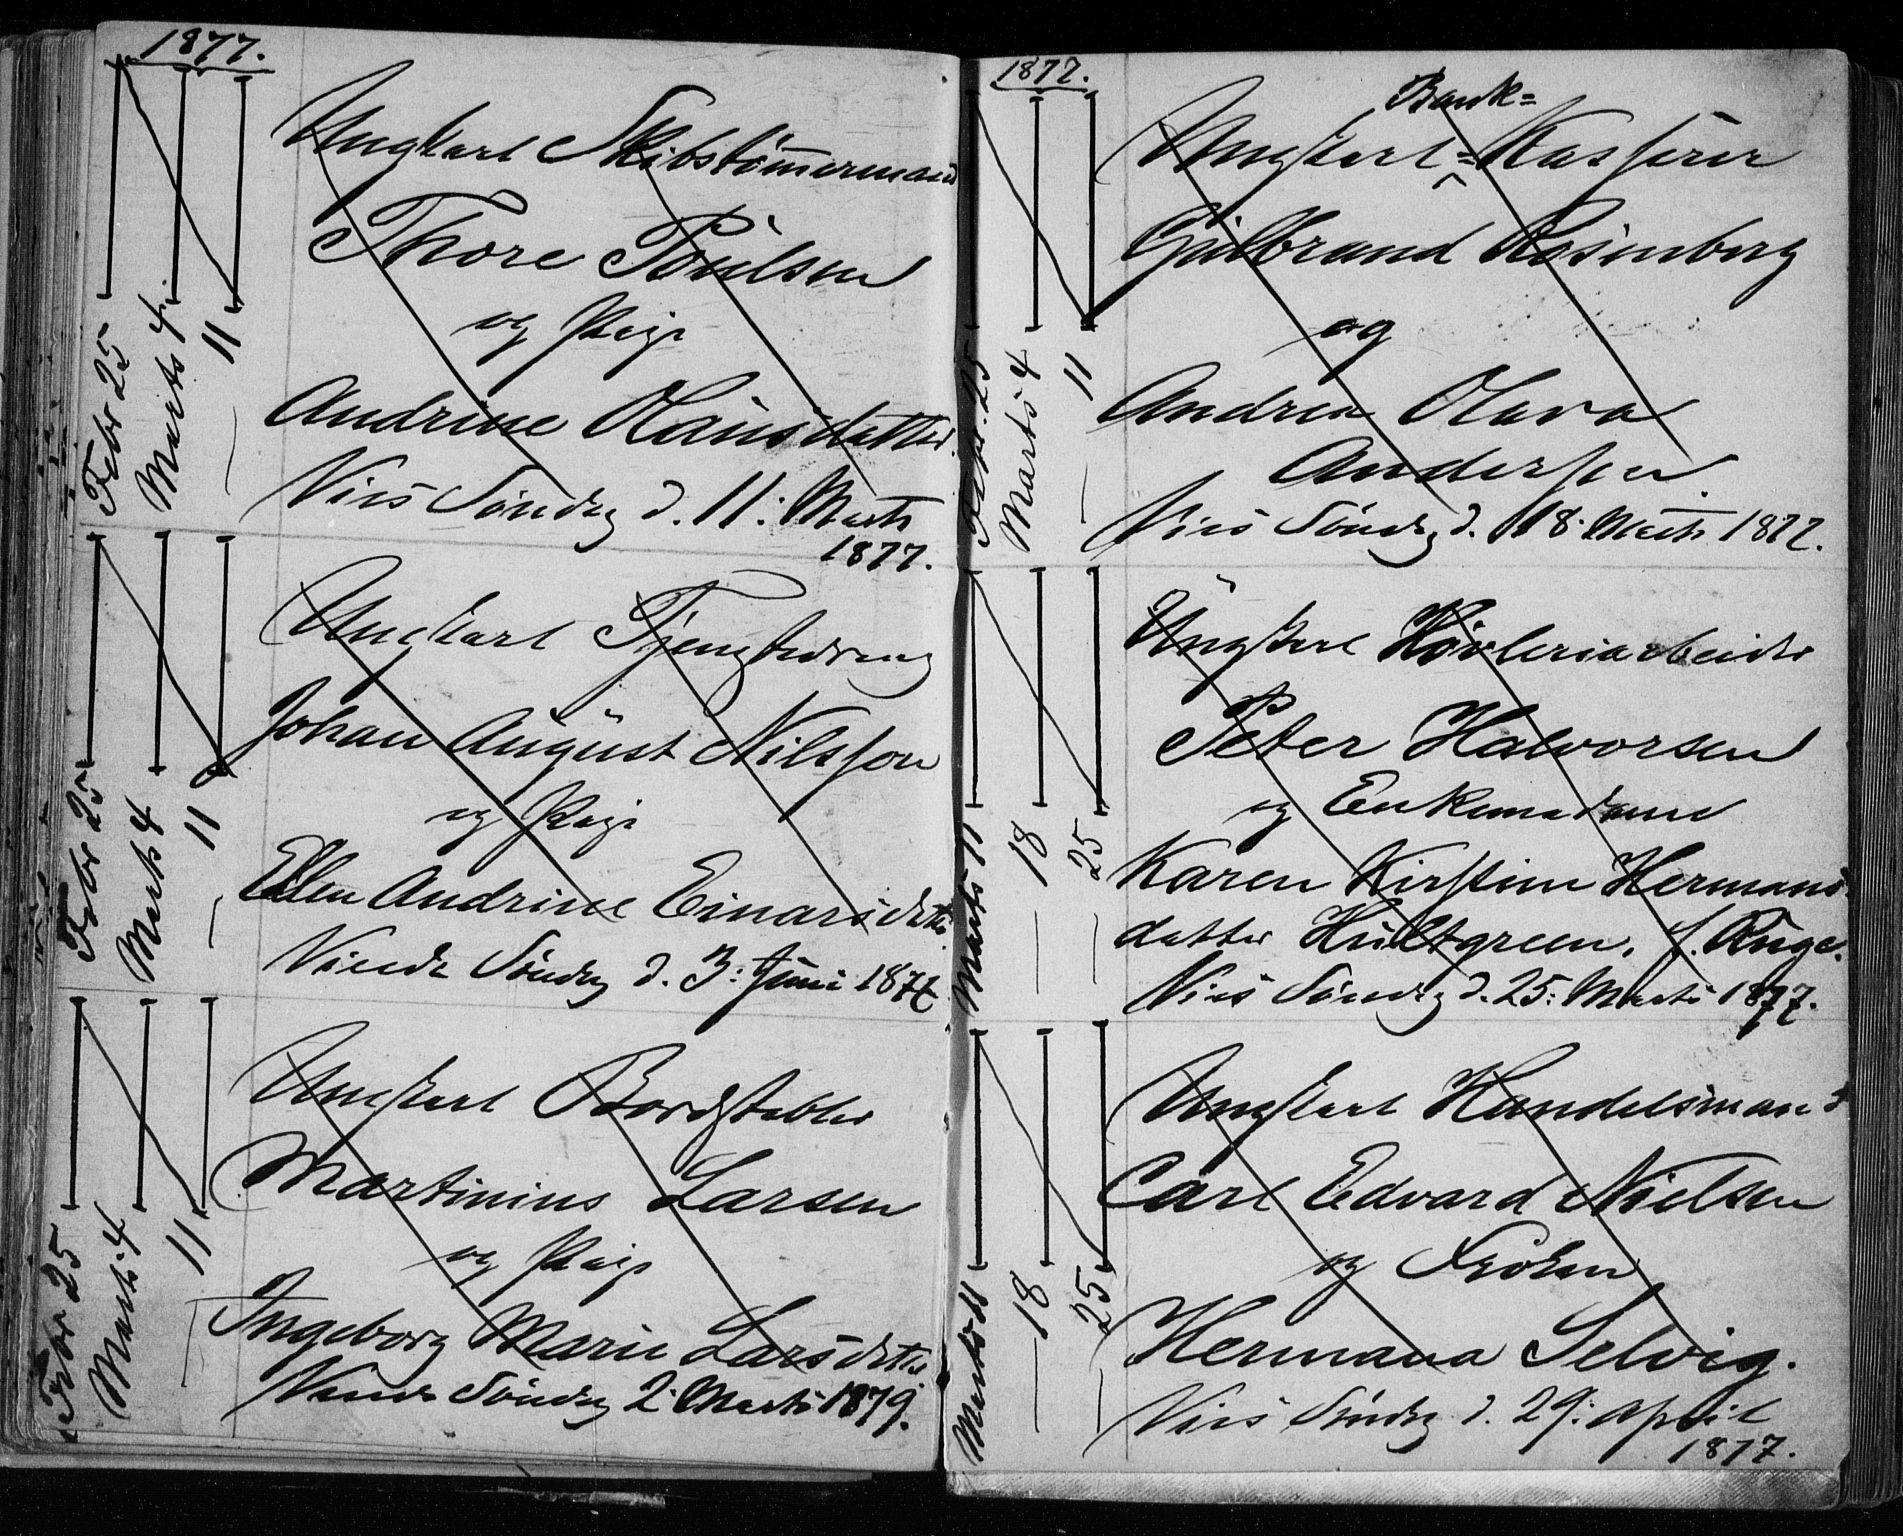 1877.
Febr 25
Marts 4
11
Ungkarl Skibstömmermand
Thore Poulsen
og Pige
Andrine Hansdatter.
Vies Söndag d. 11: Marts
1877.
Febr 25
Marts 4
11
Ungkarl Tjenstedreng
Johan August Nilsson
og Pige
Ellen Andrine Einarsdttr
Viede Söndag d. 3: Juni 1877
Febr 25
Marts 4
11
Ungkarl Bordstabler
Martinius Larsen
og Pige
Ingeborg Marie Larsdttr
Viede Söndag 2: Marts 1879.
1877.
Febr. 25
Marts 4
11
Bank=
Ungkarl=Kasserer
Gulbrand Rosenberg
og
Andrea Olava
Andersen.
Vies Söndag d. 18: Marts 1877.
Marts 11
18
25
Ungkarl Hövleriarbeider
Peter Halvorsen
og Enkemadame
Karen Kirstine Hermans-
datter Hultgreen, f. Ruge.
Vies Söndag d. 25: Marts 1877.
Marts 11
18
25
Ungkarl Handelsmand
Carl Edvard Nielsen
og Fröken
Hermana Selvig.
Vies Söndag d. 29: April
1877.